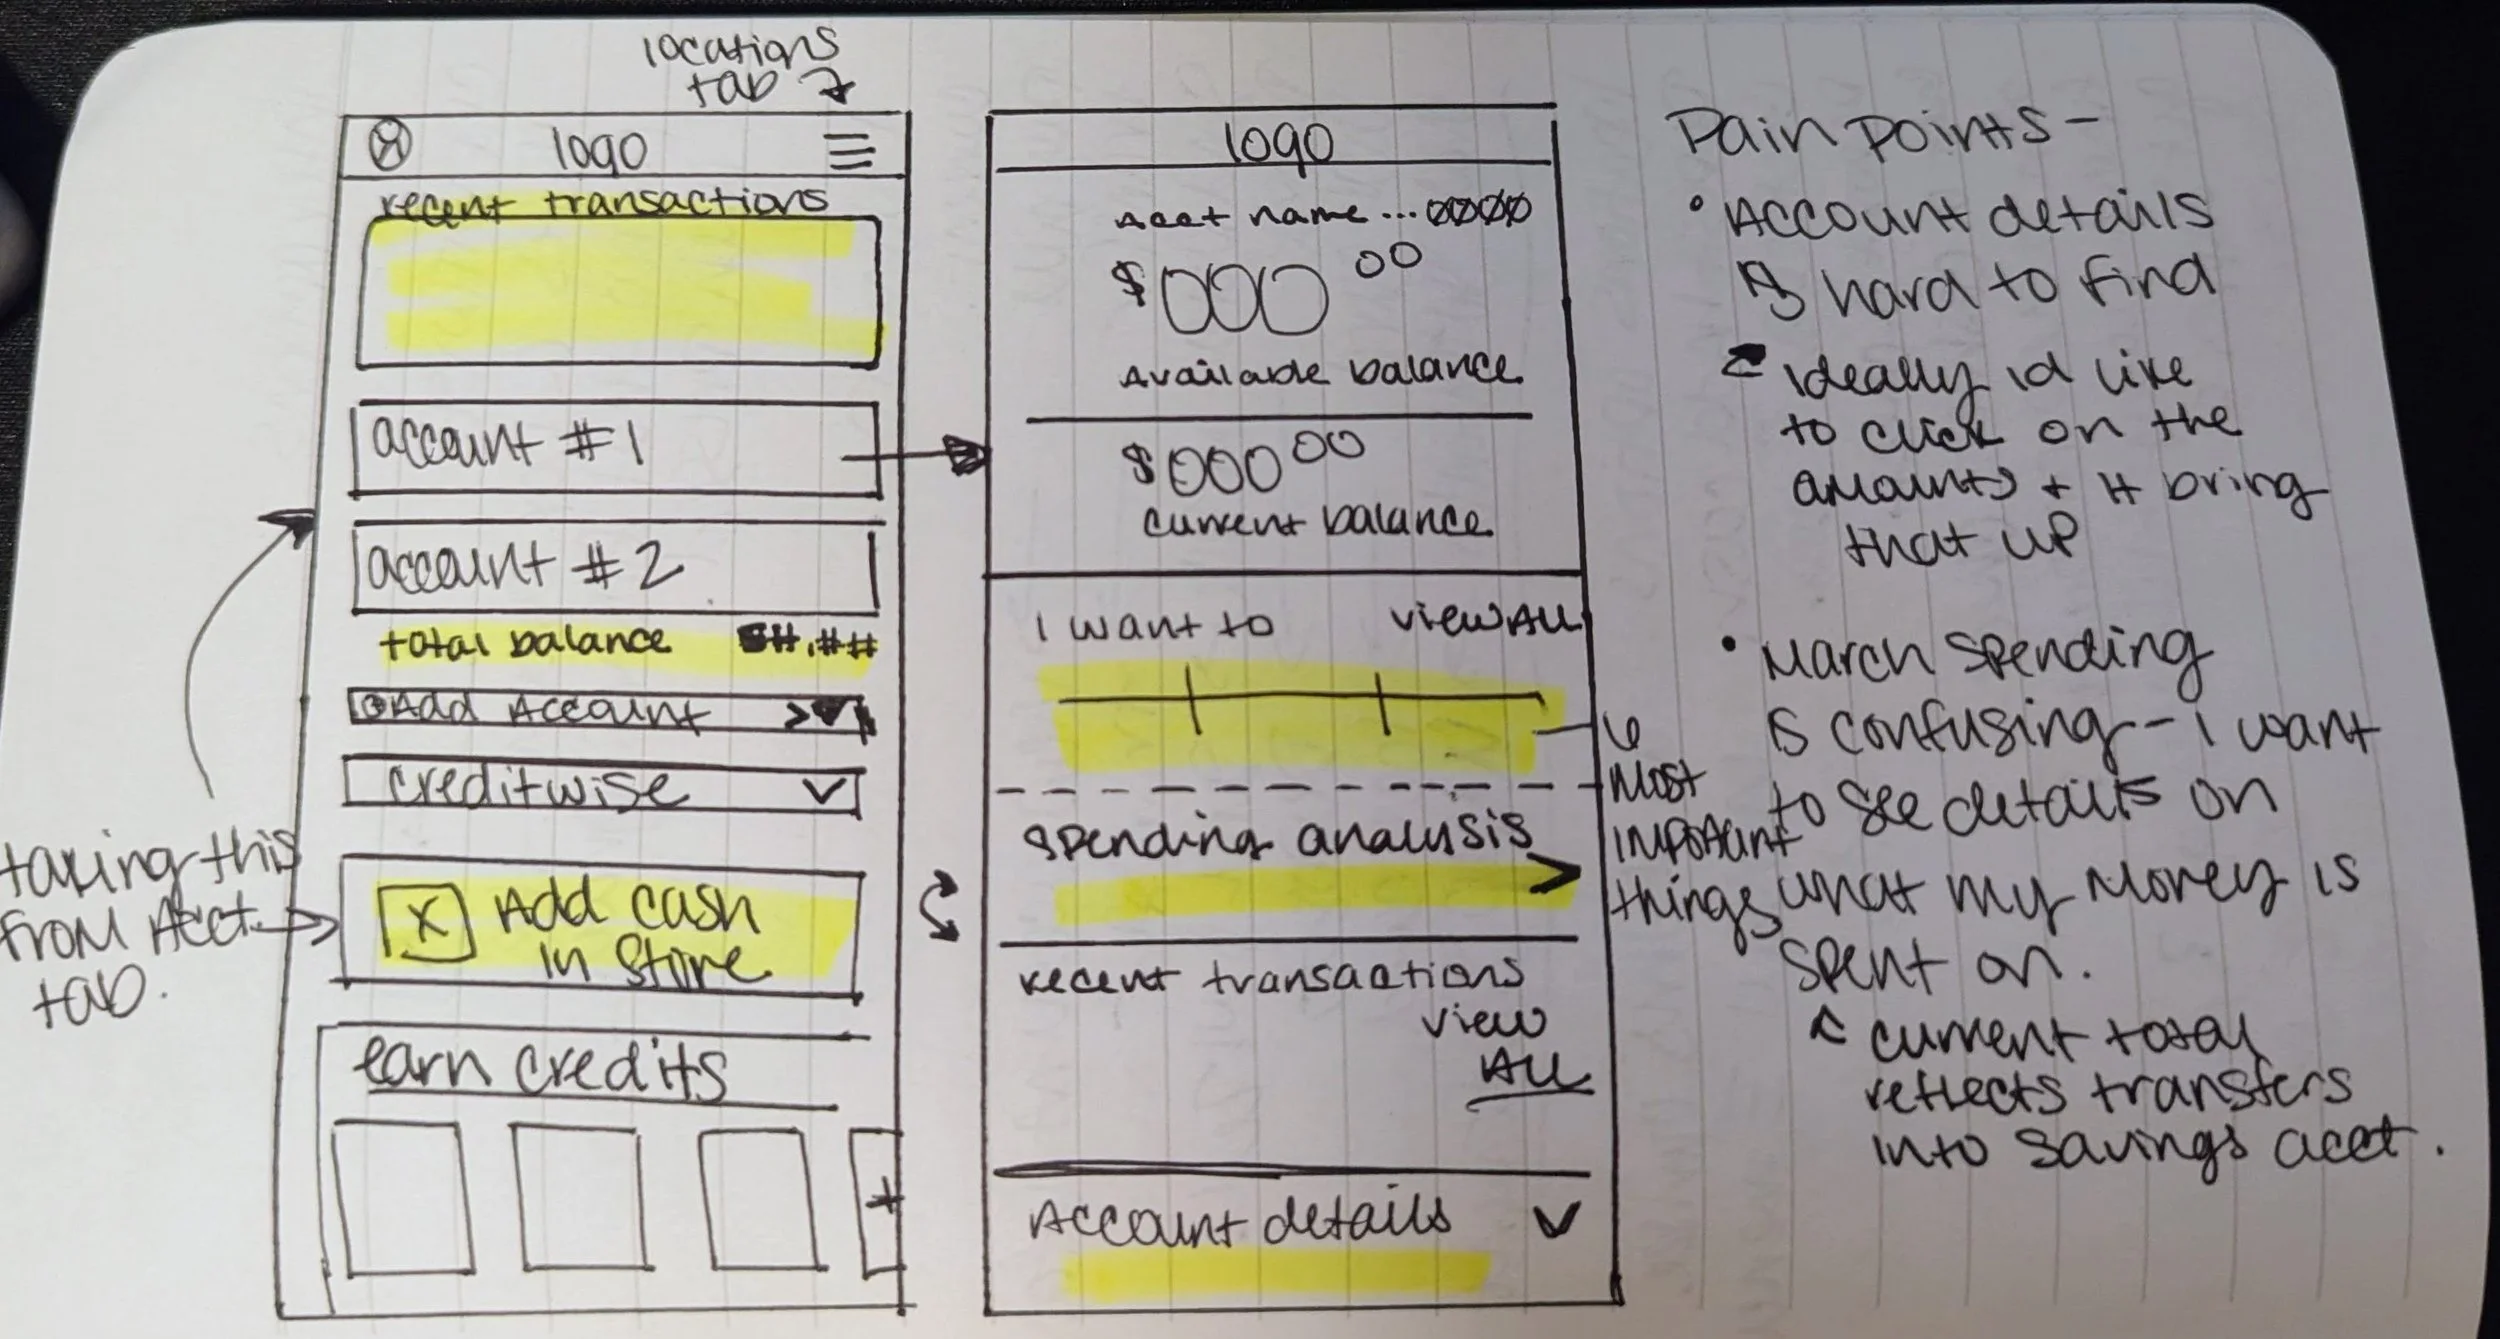 locations
tab
logo
recent transactions
account #1
account #2
total balance $#.##
Add Account >
creditwise
taking this
from Acct.
tab.
X Add cash
in Store
earn credits
+
logo
Acct name ...0000
$000 00
Available balance
$000 00
current balance
I want to view All
6
Most
important
things
spending analysis >
recent transactions
view
All
Account details
Pain points -
• Account details
is hard to find
ideally id like
to click on the
amounts + it bring
that up
• March spending
is confusing - I want
to see details on
what my money is
spent on.
current total
reflects transfers
into savings acct.